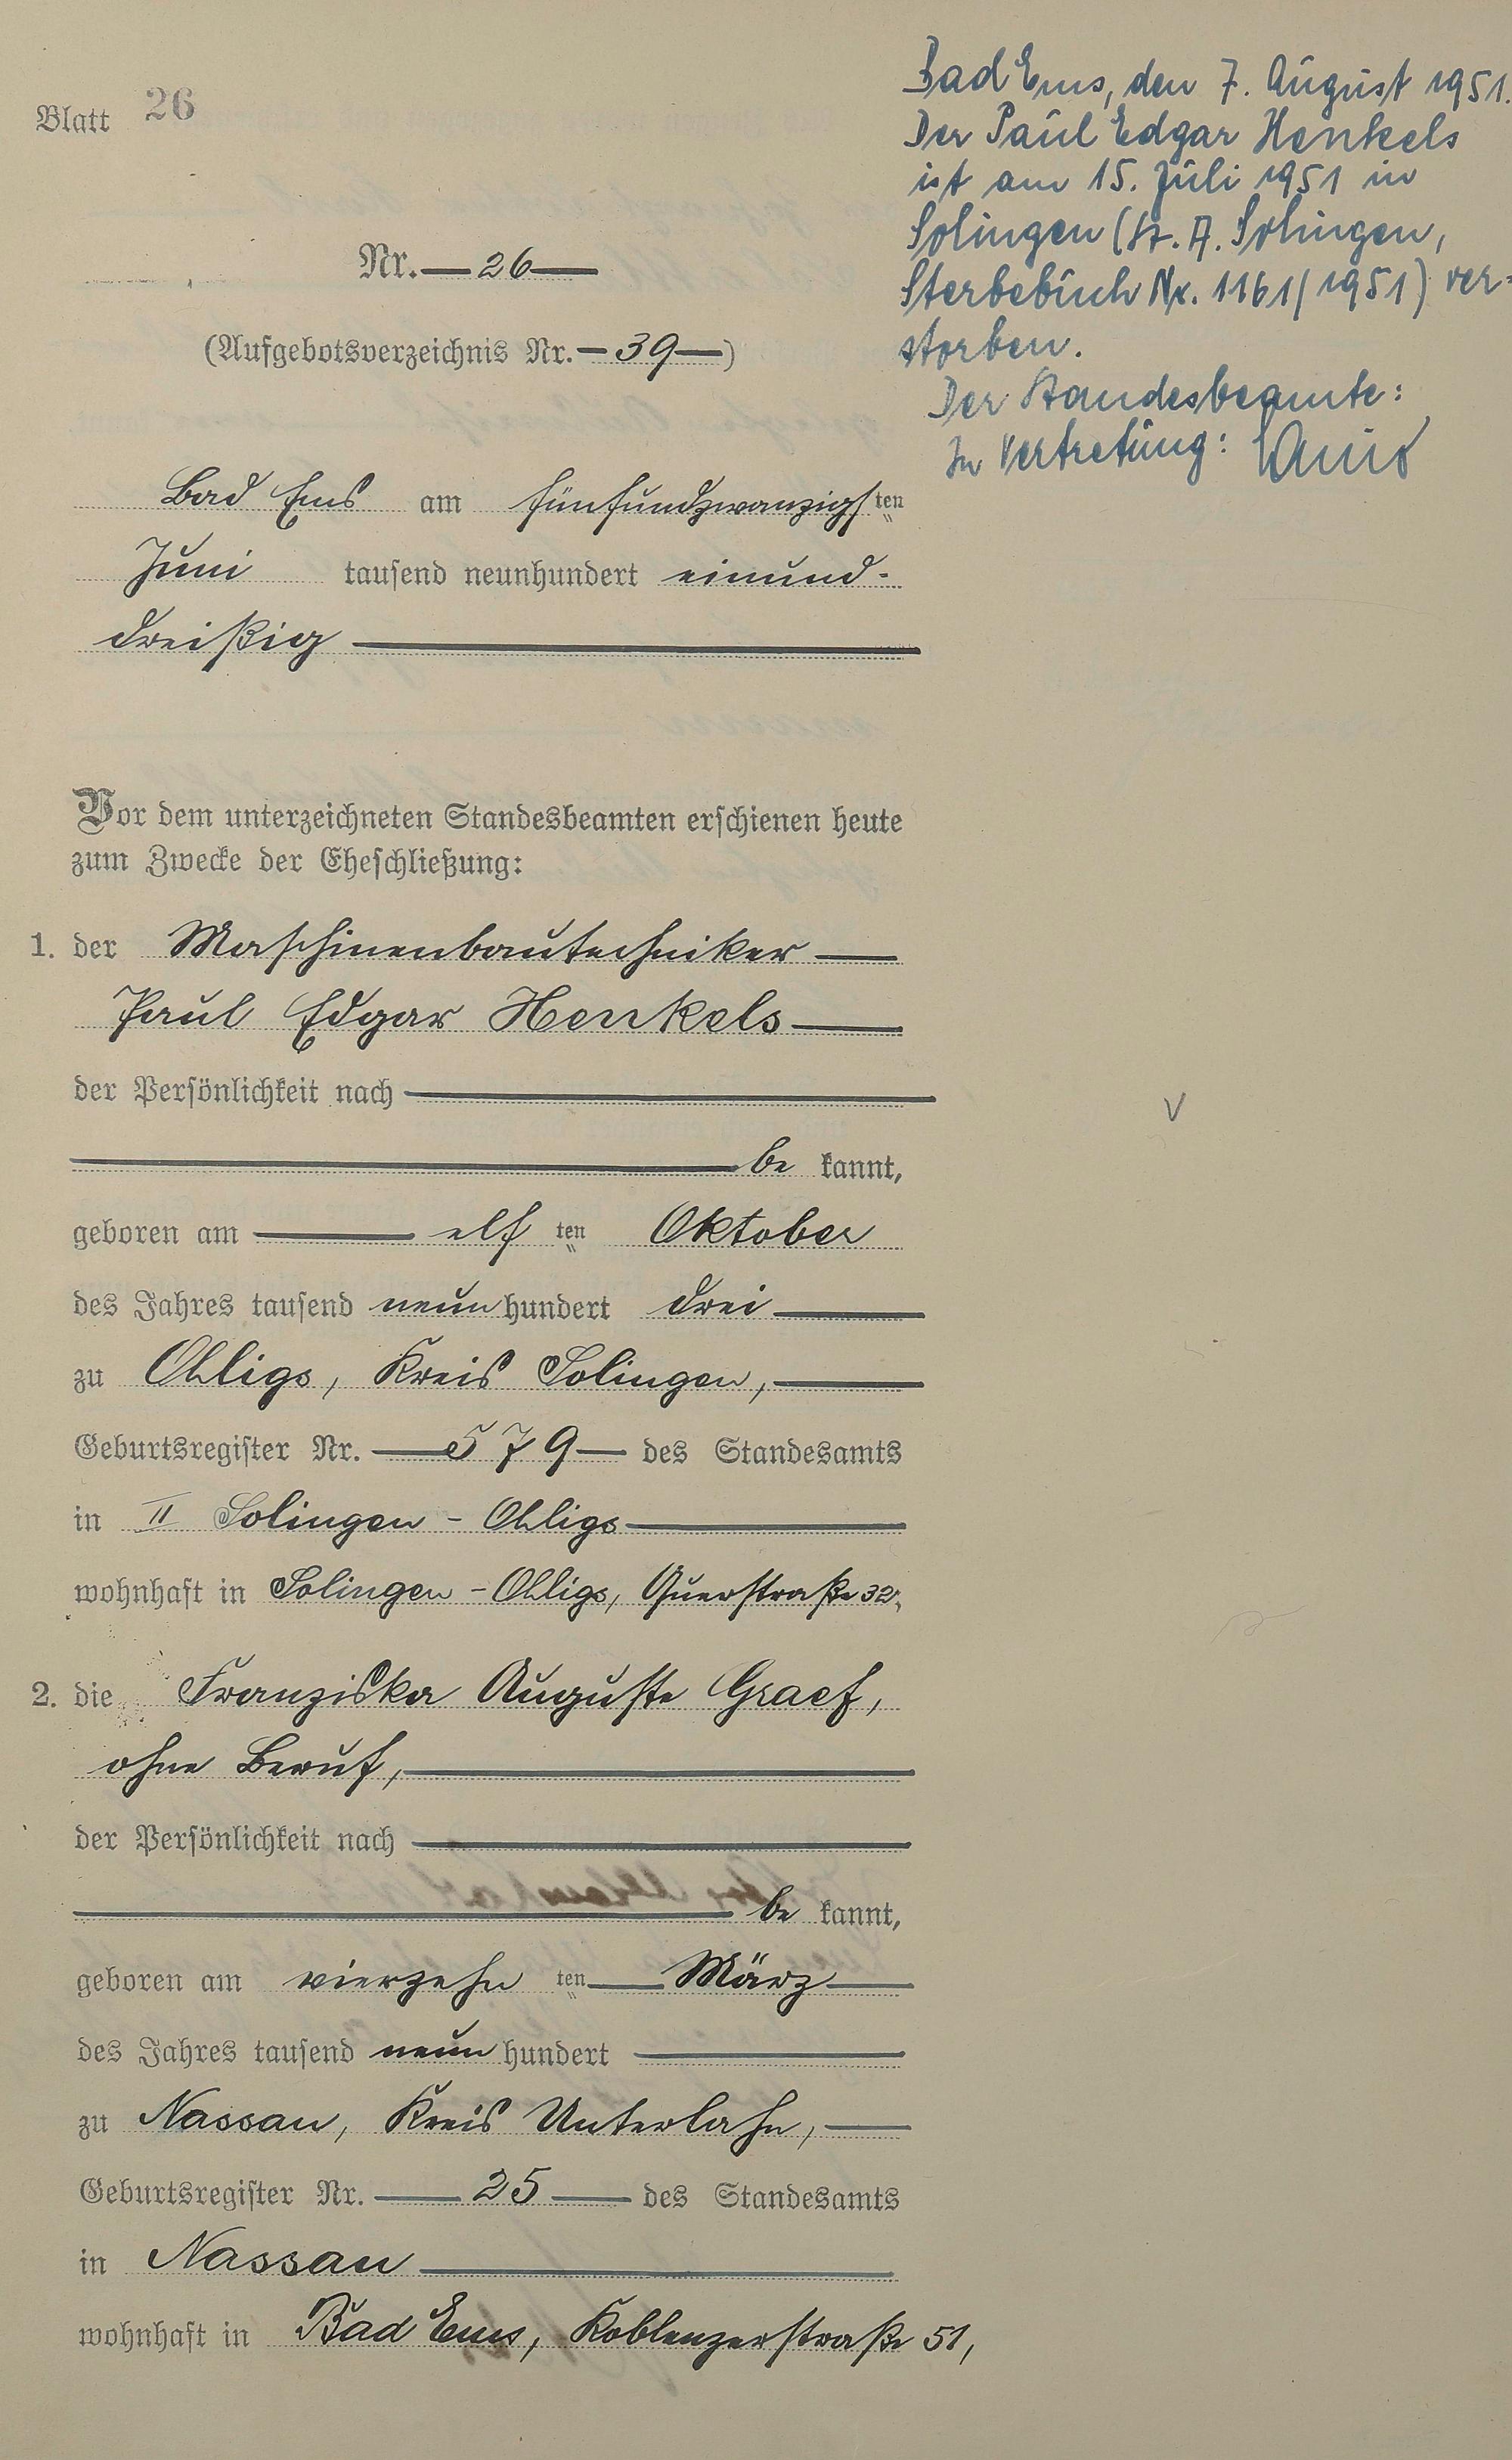 Blatt 26
Bad Ems, den 7. August 1951.
Der Paul Edgar Henkels
ist am 15. Juli 1951 in
Solingen (St. A. Solingen,
Sterbebuch Nr. 1161/1951) ver=
storben.
Der Standesbeamte:
In Vertretung:
Nr. — 26 —
(Aufgebotsverzeichnis Nr. — 39 —)
Bad Ems am fünfundzwanzigsten
Juni tausend neunhundert einund-
dreißig —
Vor dem unterzeichneten Standesbeamten erschienen heute
zum Zwecke der Eheschließung:
1. der Maschinenbautechniker —
Paul Edgar Henkels —
der Persönlichkeit nach —
— be kannt,
geboren am — elf ten Oktober
des Jahres tausend neun hundert drei —
zu Ohligs, Kreis Solingen, —
Geburtsregister Nr. — 579 — des Standesamts
in II Solingen - Ohligs —
wohnhaft in Solingen - Ohligs, Querstraße 32,
2. die Franziska Auguste Graef,
ohne Beruf, —
der Persönlichkeit nach —
— be kannt,
geboren am vierzehn ten — März —
des Jahres tausend neun hundert —
zu Nassau, Kreis Unterlahn, —
Geburtsregister Nr. — 25 — des Standesamts
in Nassau —
wohnhaft in Bad Ems, Koblenzerstraße 51,